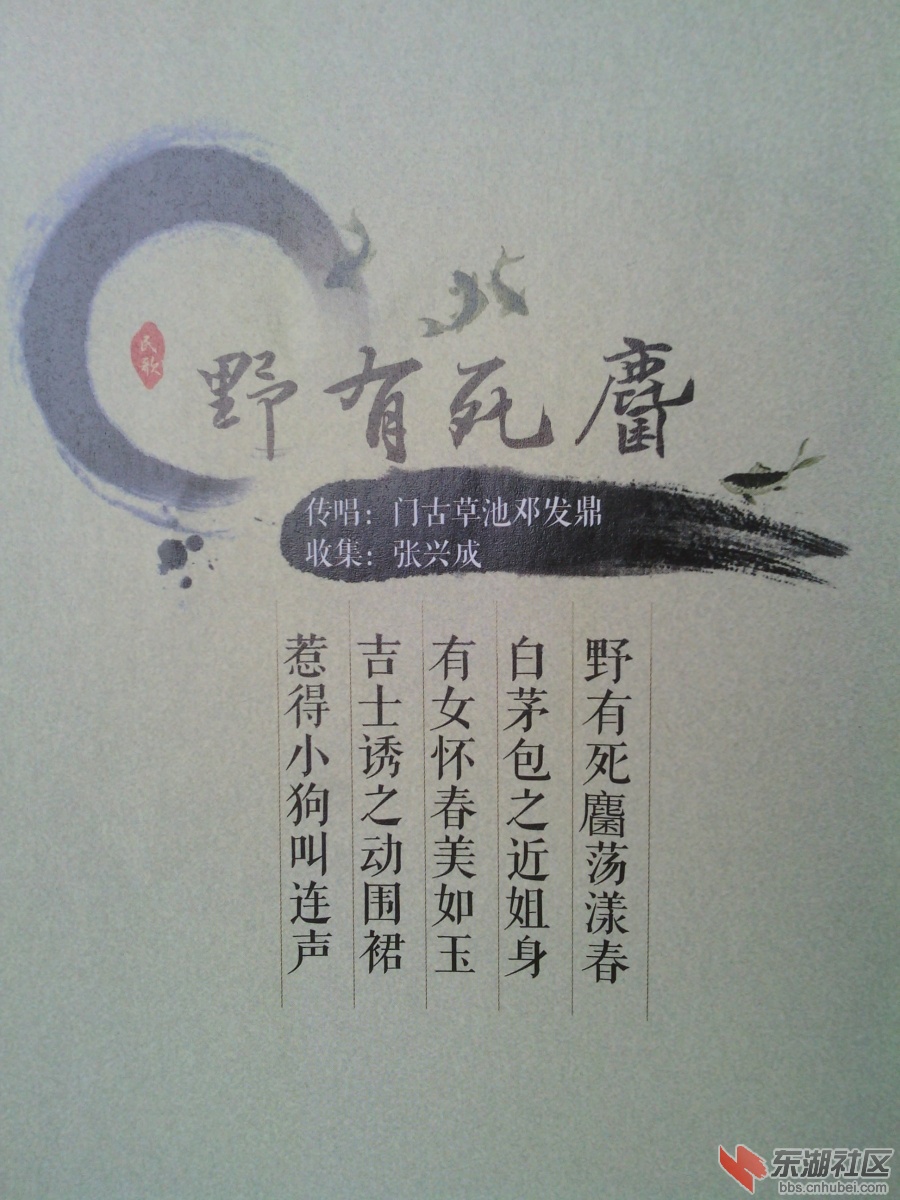 民歌
野有死麕
传唱：门古草池邓发鼎
收集：张兴成
野有死麕荡漾春
白茅包之近姐身
有女怀春美如玉
吉士诱之动围裙
惹得小狗叫连声
东湖社区
bbs.cnhubei.com